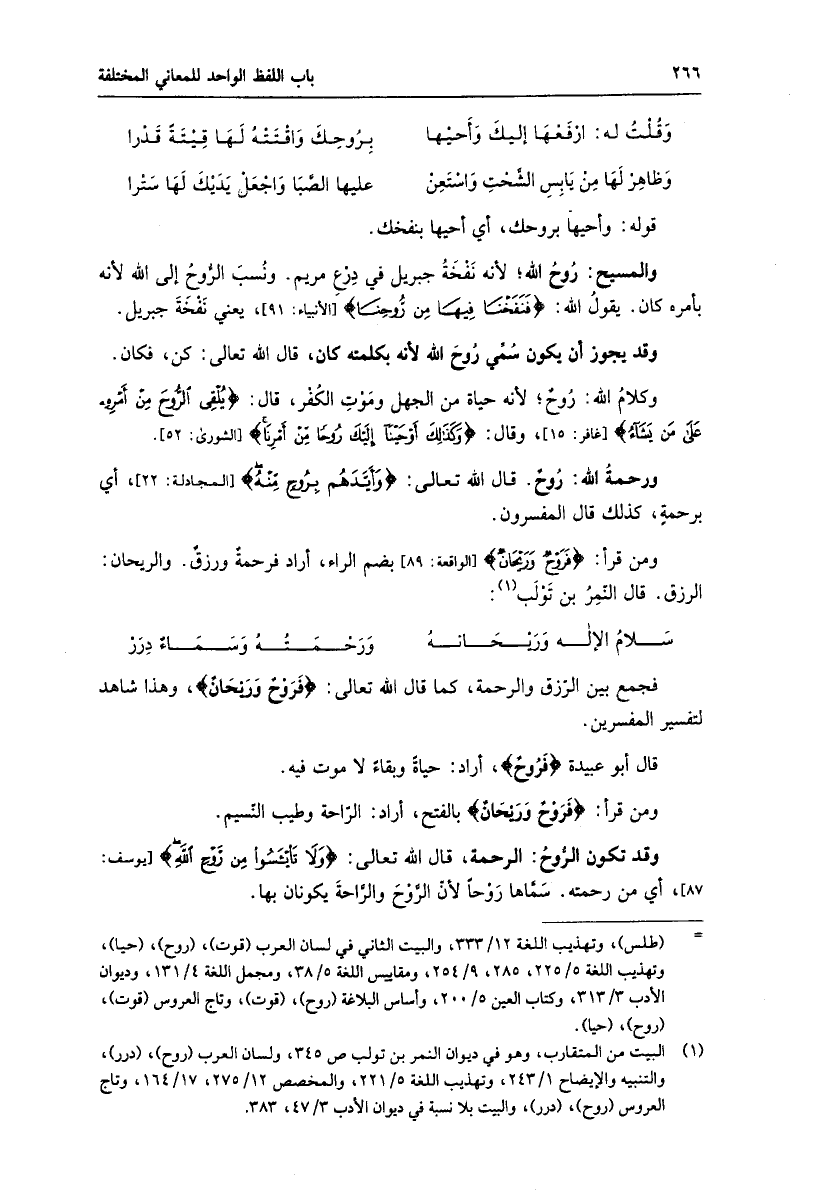 ٢٦٦ باب اللفظ الواحد للمعاني المختلفة
وَقُلْتُ له: ارْفَعْهَا إليكَ وَأَحيْها بِرُوحِكَ وَاقْتَتْهُ لَهَا قِيْتَةً قَدْرا
وَظاهِرْ لَهَا مِنْ يَابِسِ الشَّخْتِ وَاسْتَعِنْ عليها الصَّبَا وَاجْعَلْ يَدَيْكَ لَهَا سَتْرا
قوله: وأحيها بروحك، أي أحيها بنفخك.
والمسيح: رُوحُ الله؛ لأنه نَفْخَةُ جبريل في دِرْعِ مريم. ونُسبَ الرُّوحُ إلى الله لأنه
بأمره كان. يقولُ الله: ﴿فَنَفَخْنَا فِيهَا مِن رُّوحِنَا﴾ [الأنبياء: ٩١]، يعني نَفْخَةَ جبريل.
وقد يجوز أن يكون سُمِّي رُوحَ الله لأنه بكلمته كان، قال الله تعالى: كن، فكان.
وكلامُ الله: رُوحٌ؛ لأنه حياة من الجهل ومَوْتِ الكُفْر، قال: ﴿يُلْقِى ٱلرُّوحَ مِنْ أَمْرِهِۦ
عَلَىٰ مَن يَشَآءُ﴾ [غافر: ١٥]، وقال: ﴿وَكَذَٰلِكَ أَوْحَيْنَآ إِلَيْكَ رُوحًا مِّنْ أَمْرِنَا﴾ [الشورىٰ: ٥٢].
ورحمةُ الله: رُوحٌ. قال الله تعالى: ﴿وَأَيَّدَهُم بِرُوحٍ مِّنْهُ﴾ [المجادلة: ٢٢]، أي
برحمةٍ، كذلك قال المفسرون.
ومن قرأ: ﴿فَرَوْحٌ وَرَيْحَانٌ﴾ [الواقعة: ٨٩] بضم الراء، أراد فرحمةٌ ورزقٌ. والريحان:
الرزق. قال النّمِرُ بن تَوْلَب(١):
سَلامُ الإلٰه وَرَيْحَانهُ وَرَحْمَتُهُ وَسَمَاءٌ دِرَرْ
فجمع بين الرّزق والرحمة، كما قال الله تعالى: ﴿فَرَوْحٌ وَرَيْحَانٌ﴾، وهذا شاهد
لتفسير المفسرين.
قال أبو عبيدة ﴿فَرُوحٌ﴾، أراد: حياةً وبقاءً لا موت فيه.
ومن قرأ: ﴿فَرَوْحٌ وَرَيْحَانٌ﴾ بالفتح، أراد: الرّاحة وطيب النّسيم.
وقد تكون الرَّوحُ: الرحمة، قال الله تعالى: ﴿وَلَا تَاْيْـَٔسُوا۟ مِن رَّوْحِ ٱللَّهِ﴾ [يوسف:
٨٧]، أي من رحمته. سَمَّاها رَوْحاً لأنّ الرَّوْحَ والرَّاحةَ يكونان بها.
= (طلس)، وتهذيب اللغة ١٢/ ٣٣٣، والبيت الثاني في لسان العرب (قوت)، (روح)، (حيا)،
وتهذيب اللغة ٥/ ٢٢٥، ٢٨٥، ٩/ ٢٥٤، ومقاييس اللغة ٥/ ٣٨، ومجمل اللغة ٤/ ١٣١، وديوان
الأدب ٣/ ٣١٣، وكتاب العين ٥/ ٢٠٠، وأساس البلاغة (روح)، (قوت)، وتاج العروس (قوت)،
(روح)، (حيا).
(١) البيت من المتقارب، وهو في ديوان النمر بن تولب ص ٣٤٥، ولسان العرب (روح)، (درر)،
والتنبيه والإيضاح ١/ ٢٤٣، وتهذيب اللغة ٥/ ٢٢١، والمخصص ١٢/ ٢٧٥، ١٧/ ١٦٤، وتاج
العروس (روح)، (درر)، والبيت بلا نسبة في ديوان الأدب ٣/ ٤٧، ٣٨٣.